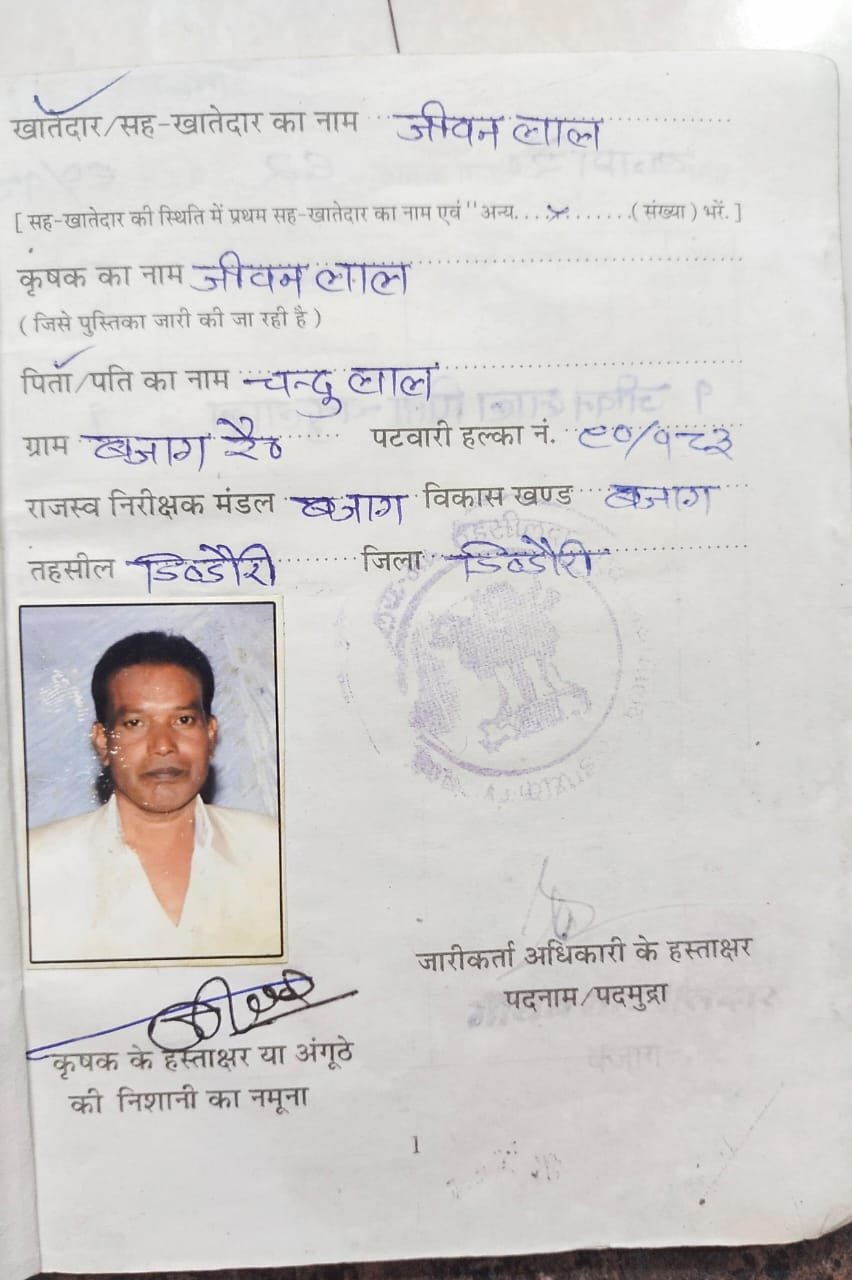 खातेदार/सह-खातेदार का नाम जीवन लाल
[ सह-खातेदार की स्थिति में प्रथम सह-खातेदार का नाम एवं "अन्य....×.......( संख्या ) भरें. ]
कृषक का नाम जीवन लाल
( जिसे पुस्तिका जारी की जा रही है )
पिता/पति का नाम चन्दु लाल
ग्राम बजाग रै० पटवारी हल्का नं. ९०/१८३
राजस्व निरीक्षक मंडल बजाग विकास खण्ड बजाग
तहसील डिण्डौरी जिला डिण्डौरी
जारीकर्ता अधिकारी के हस्ताक्षर
पदनाम/पदमुद्रा
कृषक के हस्ताक्षर या अंगूठे
की निशानी का नमूना
1